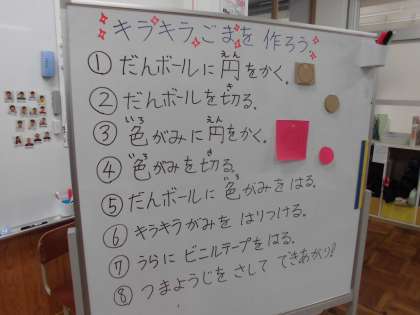 キラキラごまを作ろう
① だんボールに円をかく。
② だんボールを切る。
③ 色がみに円をかく。
④ 色がみを切る。
⑤ だんボールに色がみをはる。
⑥ キラキラがみをはりつける。
⑦ うらにビニルテープをはる。
⑧ つまようじをさしてできあがり!